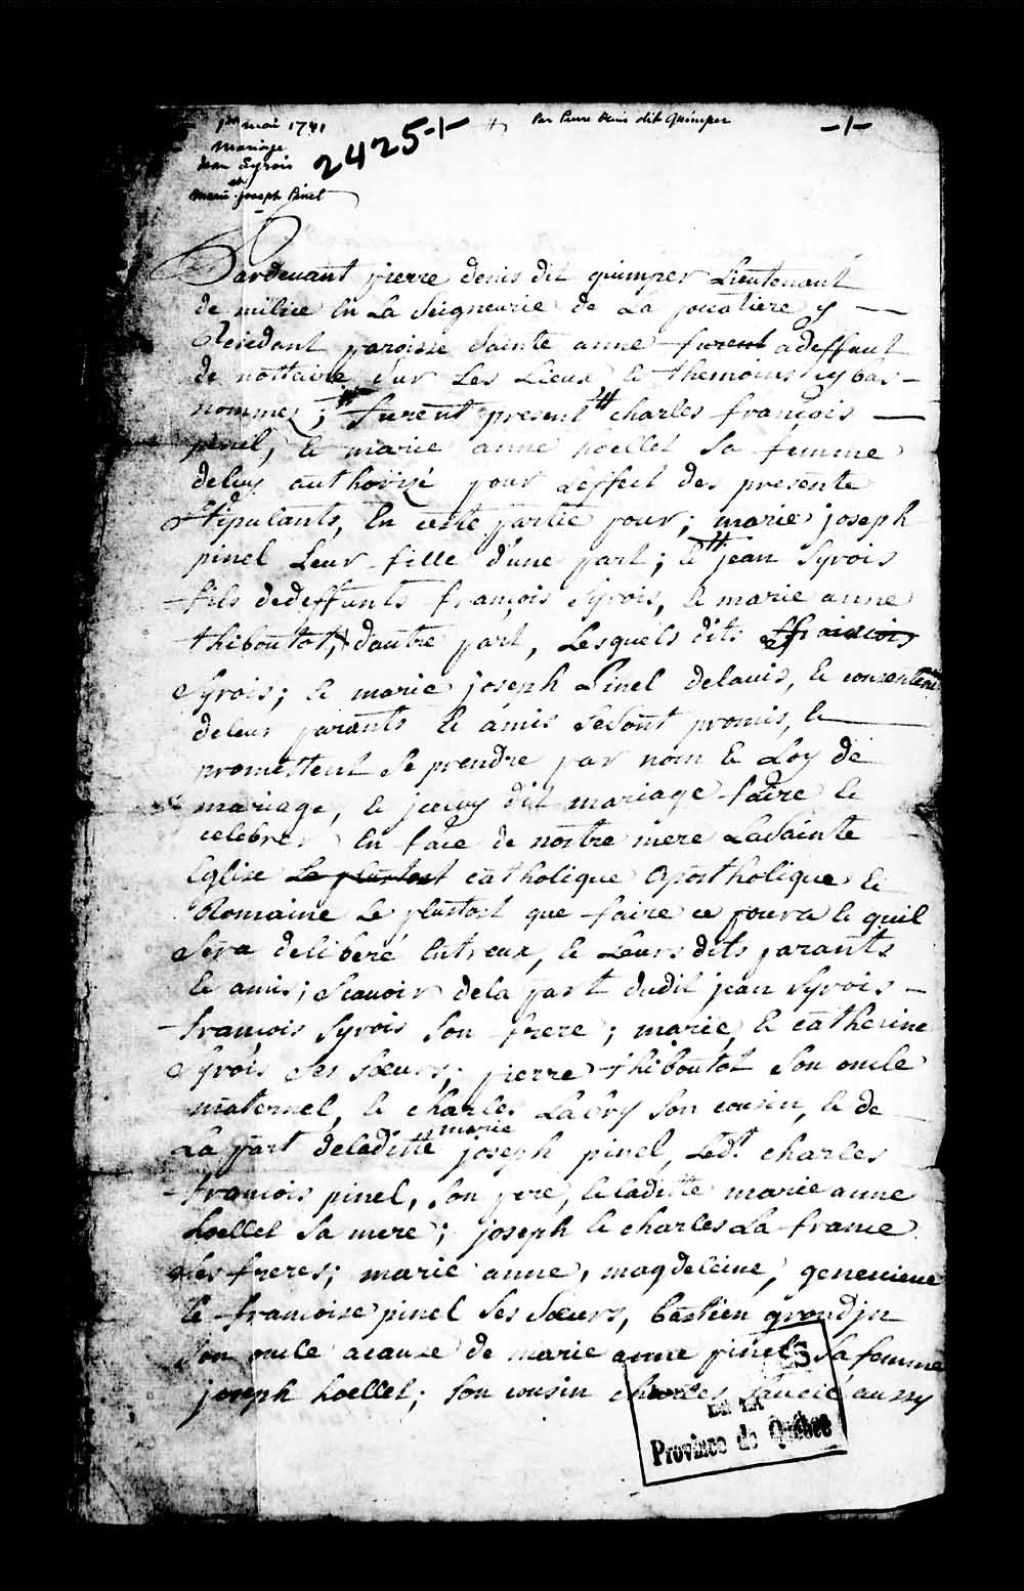 1er mai 1741
Mariage
Jean Syrois
et
Marie-joseph Pinel
2425 -|-
Par Pierre Denis dit Quimper
-1-
Pardevant pierre denis dit quimper Lieutenant
de milice En La Seigneurie de La pocatiere y —
Residant paroisse Sainte anne furent adeffaut
de nottaire Sur Les Lieux, & themoins cy bas-
nommez ; furent present charles françois —
pinel, & marie anne hoellet Sa femme
deluy authorizé pour Leffect des presente
Stipulants, En cette partie pour ; marie joseph
pinel Leur fille d'une part ; & jean Syrois
fils dedeffunts françois Syrois, & marie anne
thiboutot, dautre part, Lesquels dits françois
Syrois ; & marie joseph Pinel delavis, & consentem
deleur parants & amis Sesont promis, & —
promettent Se prendre par nom & Loy de
mariage, & jceluy dit mariage faire &
celebrer En face de nostre mere LaSainte
Eglise Le plustost catholique Apostholique &
Romaine Le plustost que faire ce poura & quil
Sera deliberé Entreux, & Leurs dits parants
& amis ; Scavoir dela part dudit jean Syrois -
françois Syrois Son frere ; marie, & catherine
Syrois Ses Sœurs ; pierre thiboutot Son oncle
maternel, & charles Labry Son cousin, & de
La part deladitte marie joseph pinel, Led.t charles
françois pinel, Son pere, & laditte marie anne
hoellet Sa mere ; joseph & charles La france
Ses freres ; marie anne, magdeleine, genevieve
& francoise pinel Ses Sœurs, bastien grondjn
Son oncle acause de marie anne pinel Sa femme
joseph hoellet ; Son cousin charles Saucié aussy
DE LA
Province de Québec